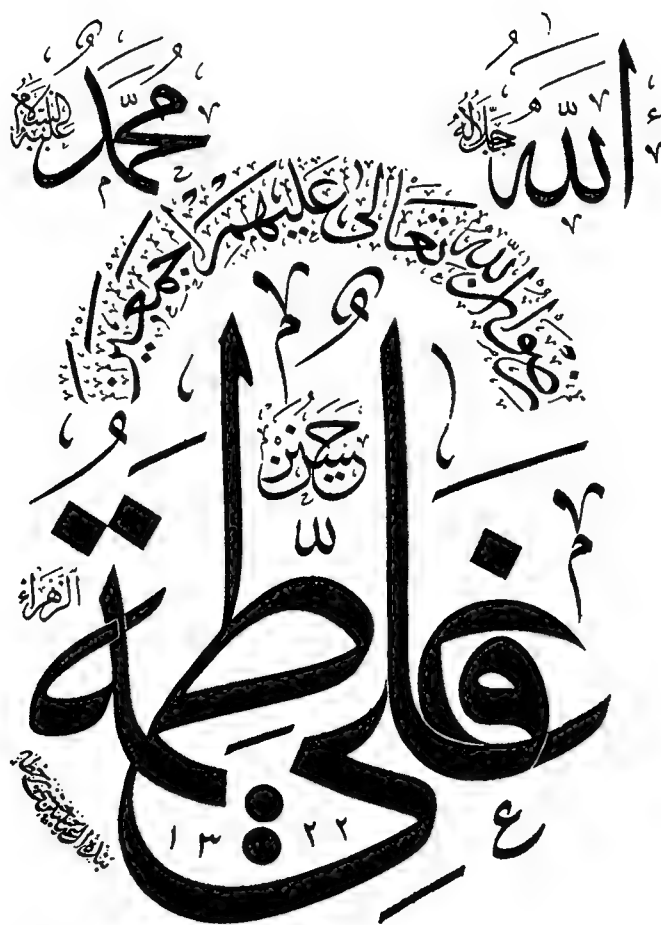 الله جل جلاله
محمد عليه السلام
رضوان الله تعالى عليهم اجمعين
فاطمة
الزهراء
علي
١٣٢٢